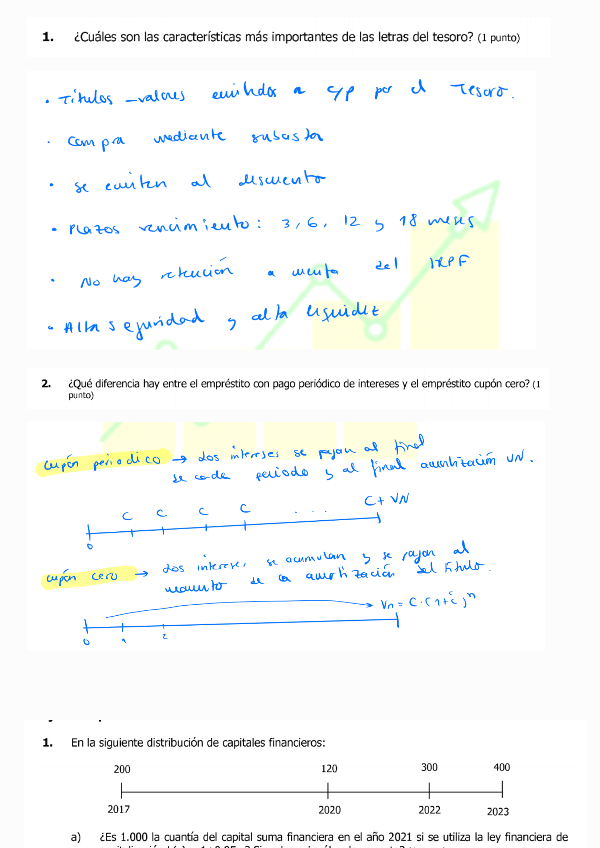 1. ¿Cuáles son las características más importantes de las letras del tesoro? (1 punto)
• Títulos-valores emitidos a c/p por el Tesoro.
· Compra mediante subasta
• Se emiten al descuento
• Plazos vencimiento: 3, 6, 12 y 18 meses
· No hay retención a cuenta del IRPF
• Alta seguridad y alta liquidez
2. ¿Qué diferencia hay entre el empréstito con pago periódico de intereses y el empréstito cupón cero? (1
punto)
Cupón periodico → Los intereses se pagan al final
de cada periodo y al final amortización VN.
C C C C ... C + VN
0
Cupón cero → Los intereses se acumulan y se pagan al
momento de la amortización del título.
Vn = C·(1+i)^n
0 1 2
1. En la siguiente distribución de capitales financieros:
200 120 300 400
2017 2020 2022 2023
a) ¿Es 1.000 la cuantía del capital suma financiera en el año 2021 si se utiliza la ley financiera de